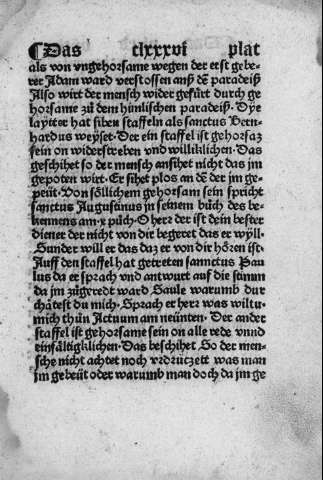 ¶Das clxxxvi plat
als von vngehorsame wegen der erst gebe-
rer Adam ward verstossen auß dē paradeiß
Also wirt der mensch wider gefürt durch ge
horsame zů dem himlischen paradeiß· Dye
laytter hat siben staffeln als sanctus Bern-
hardus weyset· Der ein staffel ist gehorsaz
sein on widerstreben vnd williklichen· Das
geschihet so der mensch ansihet nicht das jm
gepoten wirt· Er sihet plos an dē der jm ge-
peüt· Von söllichem gehorsam sein spricht
sanctus Augustinus in seinem bůch des be-
kennens am·x·půch· O herz der ist dein bester
diener der nicht von dir begeret das er wȳll·
Sunder will er das daz er von dir hören ist·
Auff den staffel hat getreten sannctus Pau
lus da er sprach vnd antwurt auf die stimm
da jm zůgeredt ward Saule warumb dur
chåtest du mich· Sprach er herr was wiltu
mich thůn Actuum am neünten· Der ander
staffel ist gehorsame sein on alle rede vnnd
einfåltigklichen· Das beschihet So der men-
sche nicht achtet noch vrdrüczett was man
jm gebeüt oder warumb man doch da jm ge